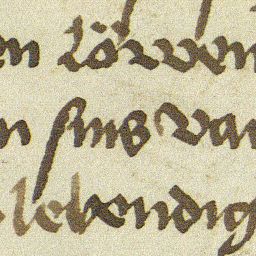 en lörven
n sins van
lebendig